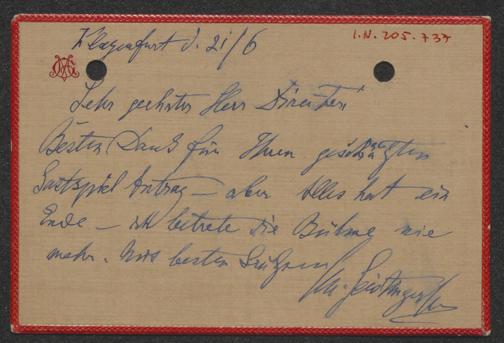 Klagenfurt d. 21/6
I.N. 205.737
Sehr geehrter Herr Direktor!
Besten Dank für Ihren geschätzten
Gastspiel Antrag – aber Alles hat ein
Ende – ich betrete die Bühne nie
mehr. Mit besten Grüßen
M. Geistinger